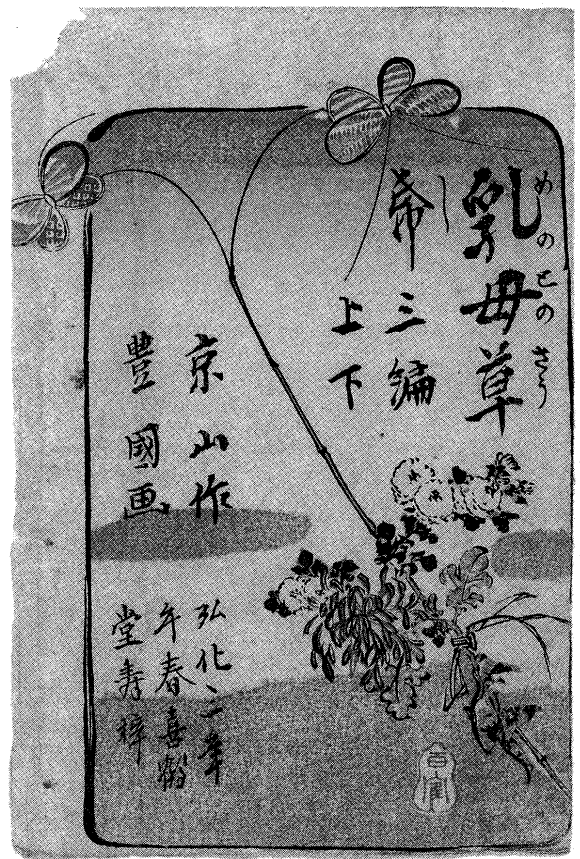 乳母草
めのとのさう
帋三編
し
上下
京山作
豊國画
弘化三年
午春喜鶴
堂寿梓